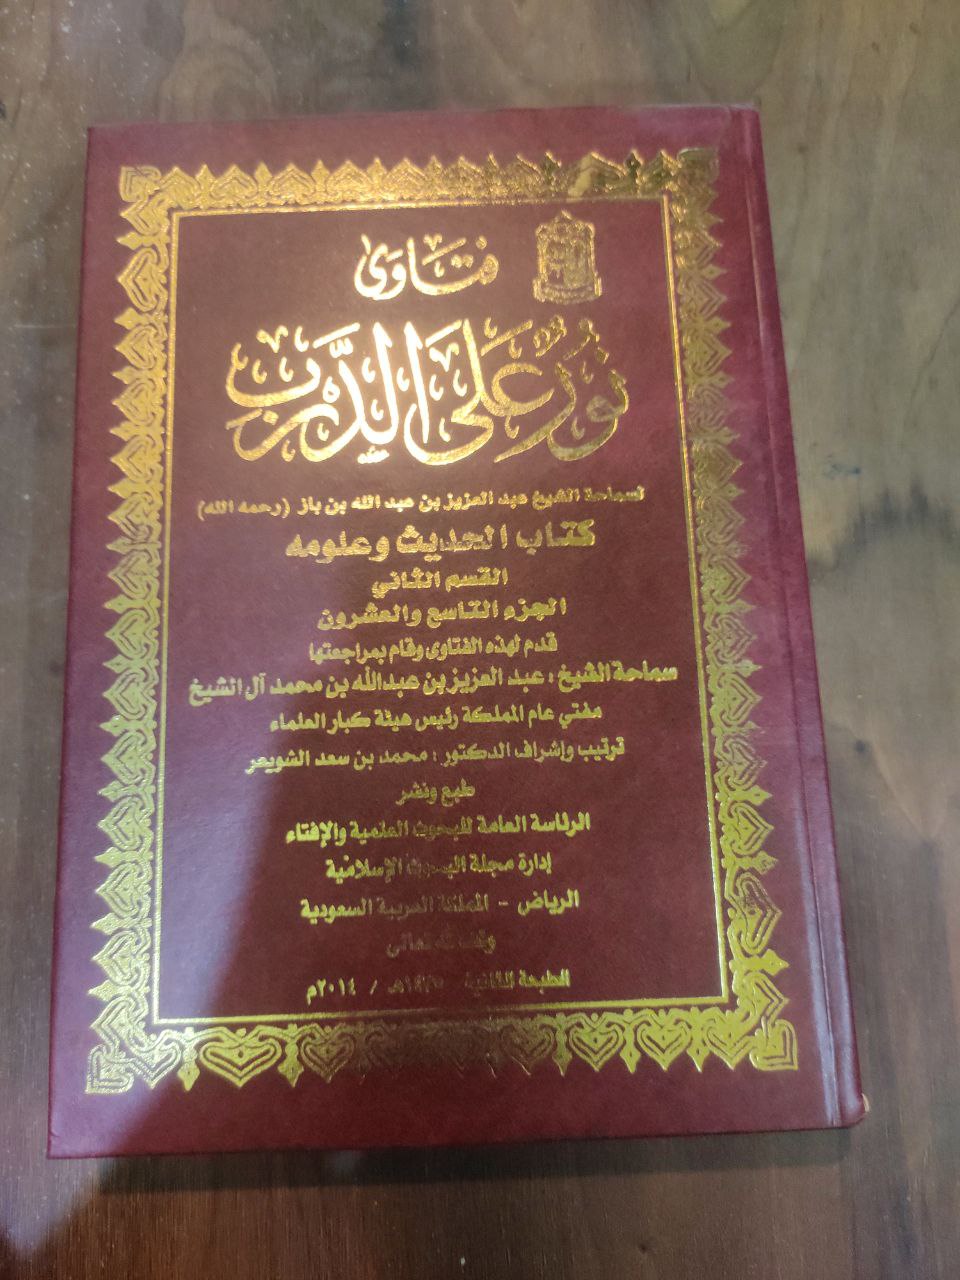 فتاوى
نُورٌ عَلَى الدَّرْبِ
لسماحة الشيخ عبد العزيز بن عبد الله بن باز (رحمه الله)
كتاب الحديث وعلومه
القسم الثاني
الجزء التاسع والعشرون
قدم لهذه الفتاوى وقام بمراجعتها
سماحة الشيخ : عبد العزيز بن عبدالله بن محمد آل الشيخ
مفتي عام المملكة رئيس هيئة كبار العلماء
ترتيب وإشراف الدكتور : محمد بن سعد الشويعر
طبع ونشر
الرئاسة العامة للبحوث العلمية والإفتاء
إدارة مجلة البحوث الإسلامية
الرياض - المملكة العربية السعودية
وقف لله تعالى
الطبعة الثانية / ٢٠١٤م